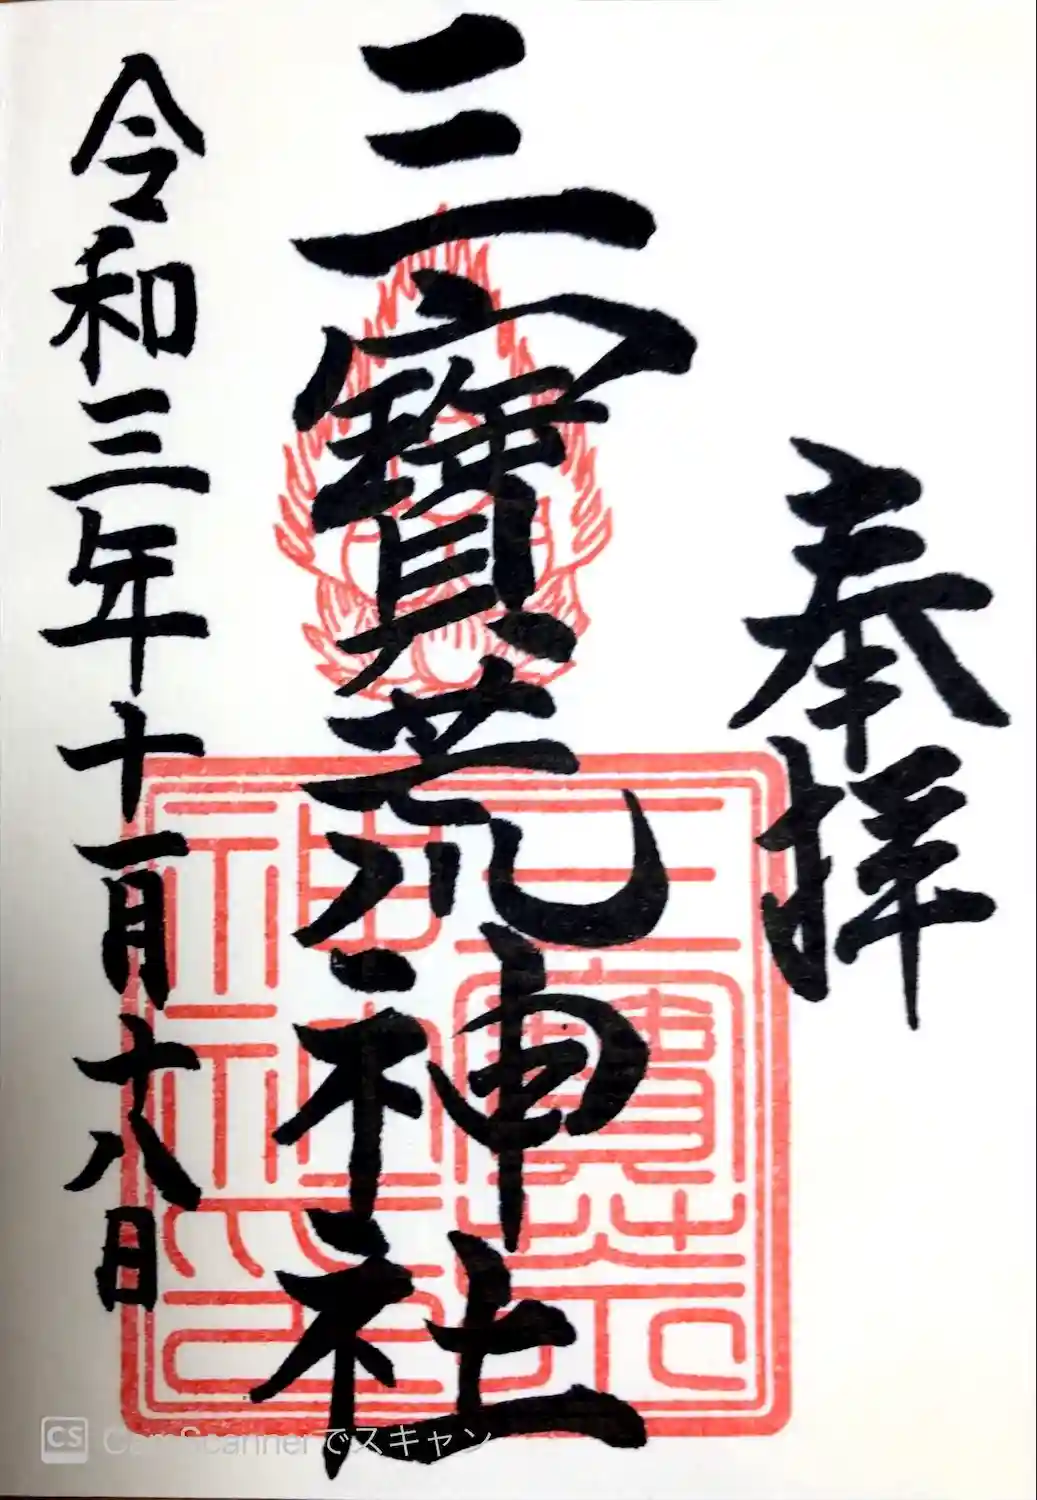 奉拝
三寳荒神社
令和三年十一月十八日
三寳荒神社印
CS CamScannerでスキャン